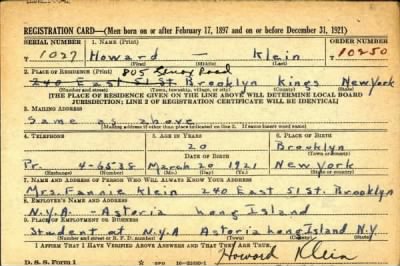 REGISTRATION CARD—(Men born on or after February 17, 1897 and on or before December 31, 1921)
SERIAL NUMBER 1. NAME (Print) ORDER NUMBER
T 1027 Howard — Klein 10250
(First) (Middle) (Last)
2. PLACE OF RESIDENCE (Print) 805 Road
240 East 51 St. Brooklyn Kings New York
(Number and street) (Town, township, village, or city) (County) (State)
[THE PLACE OF RESIDENCE GIVEN ON THE LINE ABOVE WILL DETERMINE LOCAL BOARD
JURISDICTION; LINE 2 OF REGISTRATION CERTIFICATE WILL BE IDENTICAL]
3. MAILING ADDRESS
Same as above
[Mailing address if other than place indicated on line 2. If same insert word same]
4. TELEPHONE 5. AGE IN YEARS 6. PLACE OF BIRTH
20 Brooklyn
DATE OF BIRTH (Town or county)
Pr. 4-6538 March 20 1921 New York
(Exchange) (Number) (Mo.) (Day) (Yr.) (State or country)
7. NAME AND ADDRESS OF PERSON WHO WILL ALWAYS KNOW YOUR ADDRESS
Mrs. Fannie Klein 240 East 51 St. Brooklyn
8. EMPLOYER'S NAME AND ADDRESS
N.Y.A. - Astoria Long Island
9. PLACE OF EMPLOYMENT OR BUSINESS
Student at N.Y.A Astoria Long Island N.Y
(Number and street or R. F. D. number) (Town) (County) (State)
I AFFIRM THAT I HAVE VERIFIED ABOVE ANSWERS AND THAT THEY ARE TRUE.
D. S. S. Form 1 Howard Klein